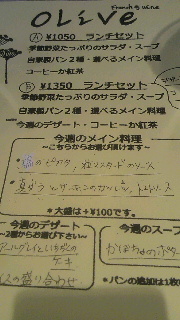 French & wine
OLive
Ⓐ ¥1050 ランチセット
季節野菜たっぷりのサラダ・スープ
自家製パン2種・選べるメイン料理
コーヒーか紅茶
Ⓑ ¥1350 ランチセット
季節野菜たっぷりのサラダ・スープ
自家製パン2種・選べるメイン料理
今週のデザート・コーヒーか紅茶
今週のメイン料理
～こちらからお選び頂けます～
＊大盛は＋¥100です。
今週のデザート
～2種からお選び下さい～
アールグレイといちじくの
ケーキ
アイスの盛り合わせ
今週のスープ
かぼちゃのポター
＊パンの追加は1枚